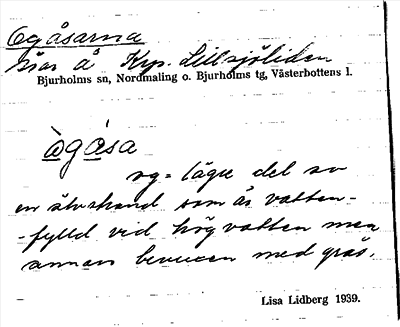 Ågåsarna
 å Krp. Lillsjöliden
Bjurholms sn, Nordmaling o. Bjurholms tg, Västerbottens l.
ågåsa
åg = lägre del av
en älvstrand som är vatten-
-fylld vid högvatten men
annars bevuxen med gräs.
Lisa Lidberg 1939.